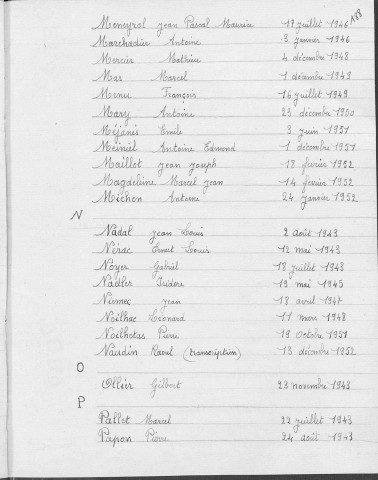 188
Meneyrol Jean Pascal Maurice 17 juillet 1946
Marchadier Antoine 3 janvier 1946
Mercier Mathieu 4 décembre 1948
Mas Marcel 1 décembre 1949
Menu François 16 juillet 1949
Mary Antoine 23 décembre 1950
Méjanis Emile 3 juin 1951
Meiniel Antoine Edmond 1 décembre 1951
Maillot Jean Joseph 18 février 1952
Magdeleine Marcel Jean 14 février 1952
Michon Antoine 24 janvier 1952
N
Nadal Jean Louis 2 août 1943
Nérac Ernest Louis 12 mai 1943
Noyer Gabriel 18 juillet 1943
Nadler Isidore 19 mai 1945
Niemec Jean 18 avril 1947
Noilhac Léonard 11 mars 1948
Noilhetas Pierre 19 octobre 1951
Naudin Raoul (transcription) 13 décembre 1952
O
Ollier Gilbert 23 novembre 1943
P
Pallet Marcel 22 juillet 1943
Papon Pierre 24 août 1943